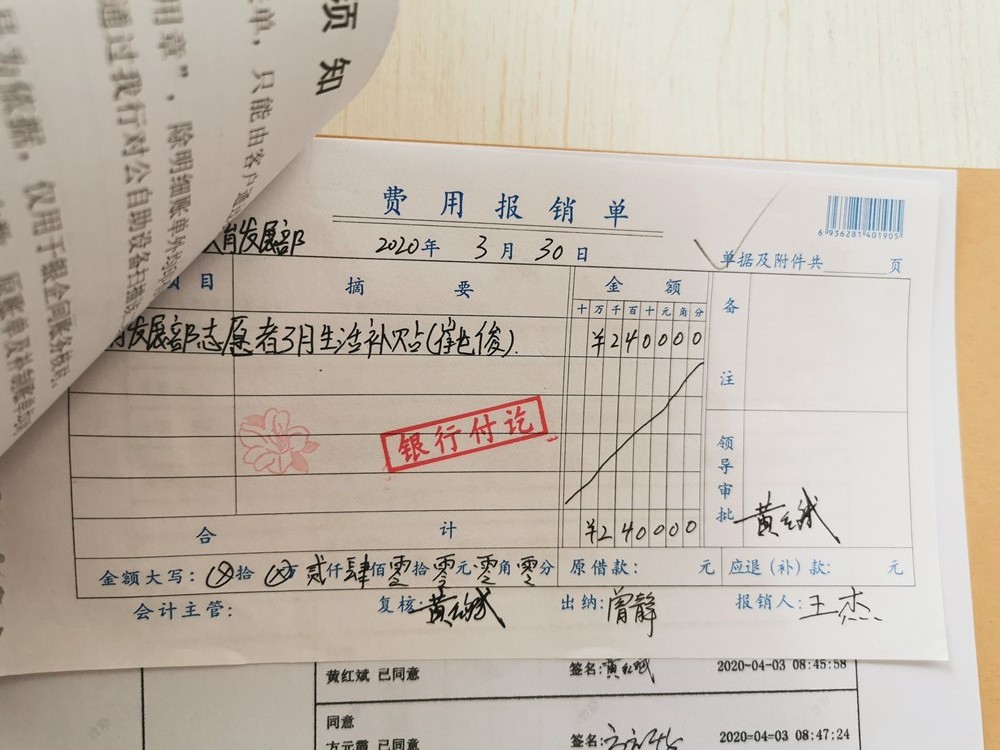 须知
单，只能由客户通
用章”，除明细账单外
通过我行对公自助设备扫描
仅用于银企间账务核
费用报销单
6 936281 401905
育发展部 2020年 3月 30日 单据及附件共 页
项目 摘要 金额 备注
十万千百十元角分
发展部志愿者3月生活补贴 ¥240000
银行付讫
领导审批
合计 ¥240000
金额大写：⊗拾⊗万贰仟肆佰零拾零元零角零分 原借款： 元 应退（补）款： 元
会计主管： 复核：黄红斌 出纳：曾静 报销人：王杰
黄红斌 已同意 签名：黄红斌 2020-04-03 08:45:58
同意
方元霞 已同意 签名： 2020-04-03 08:47:24